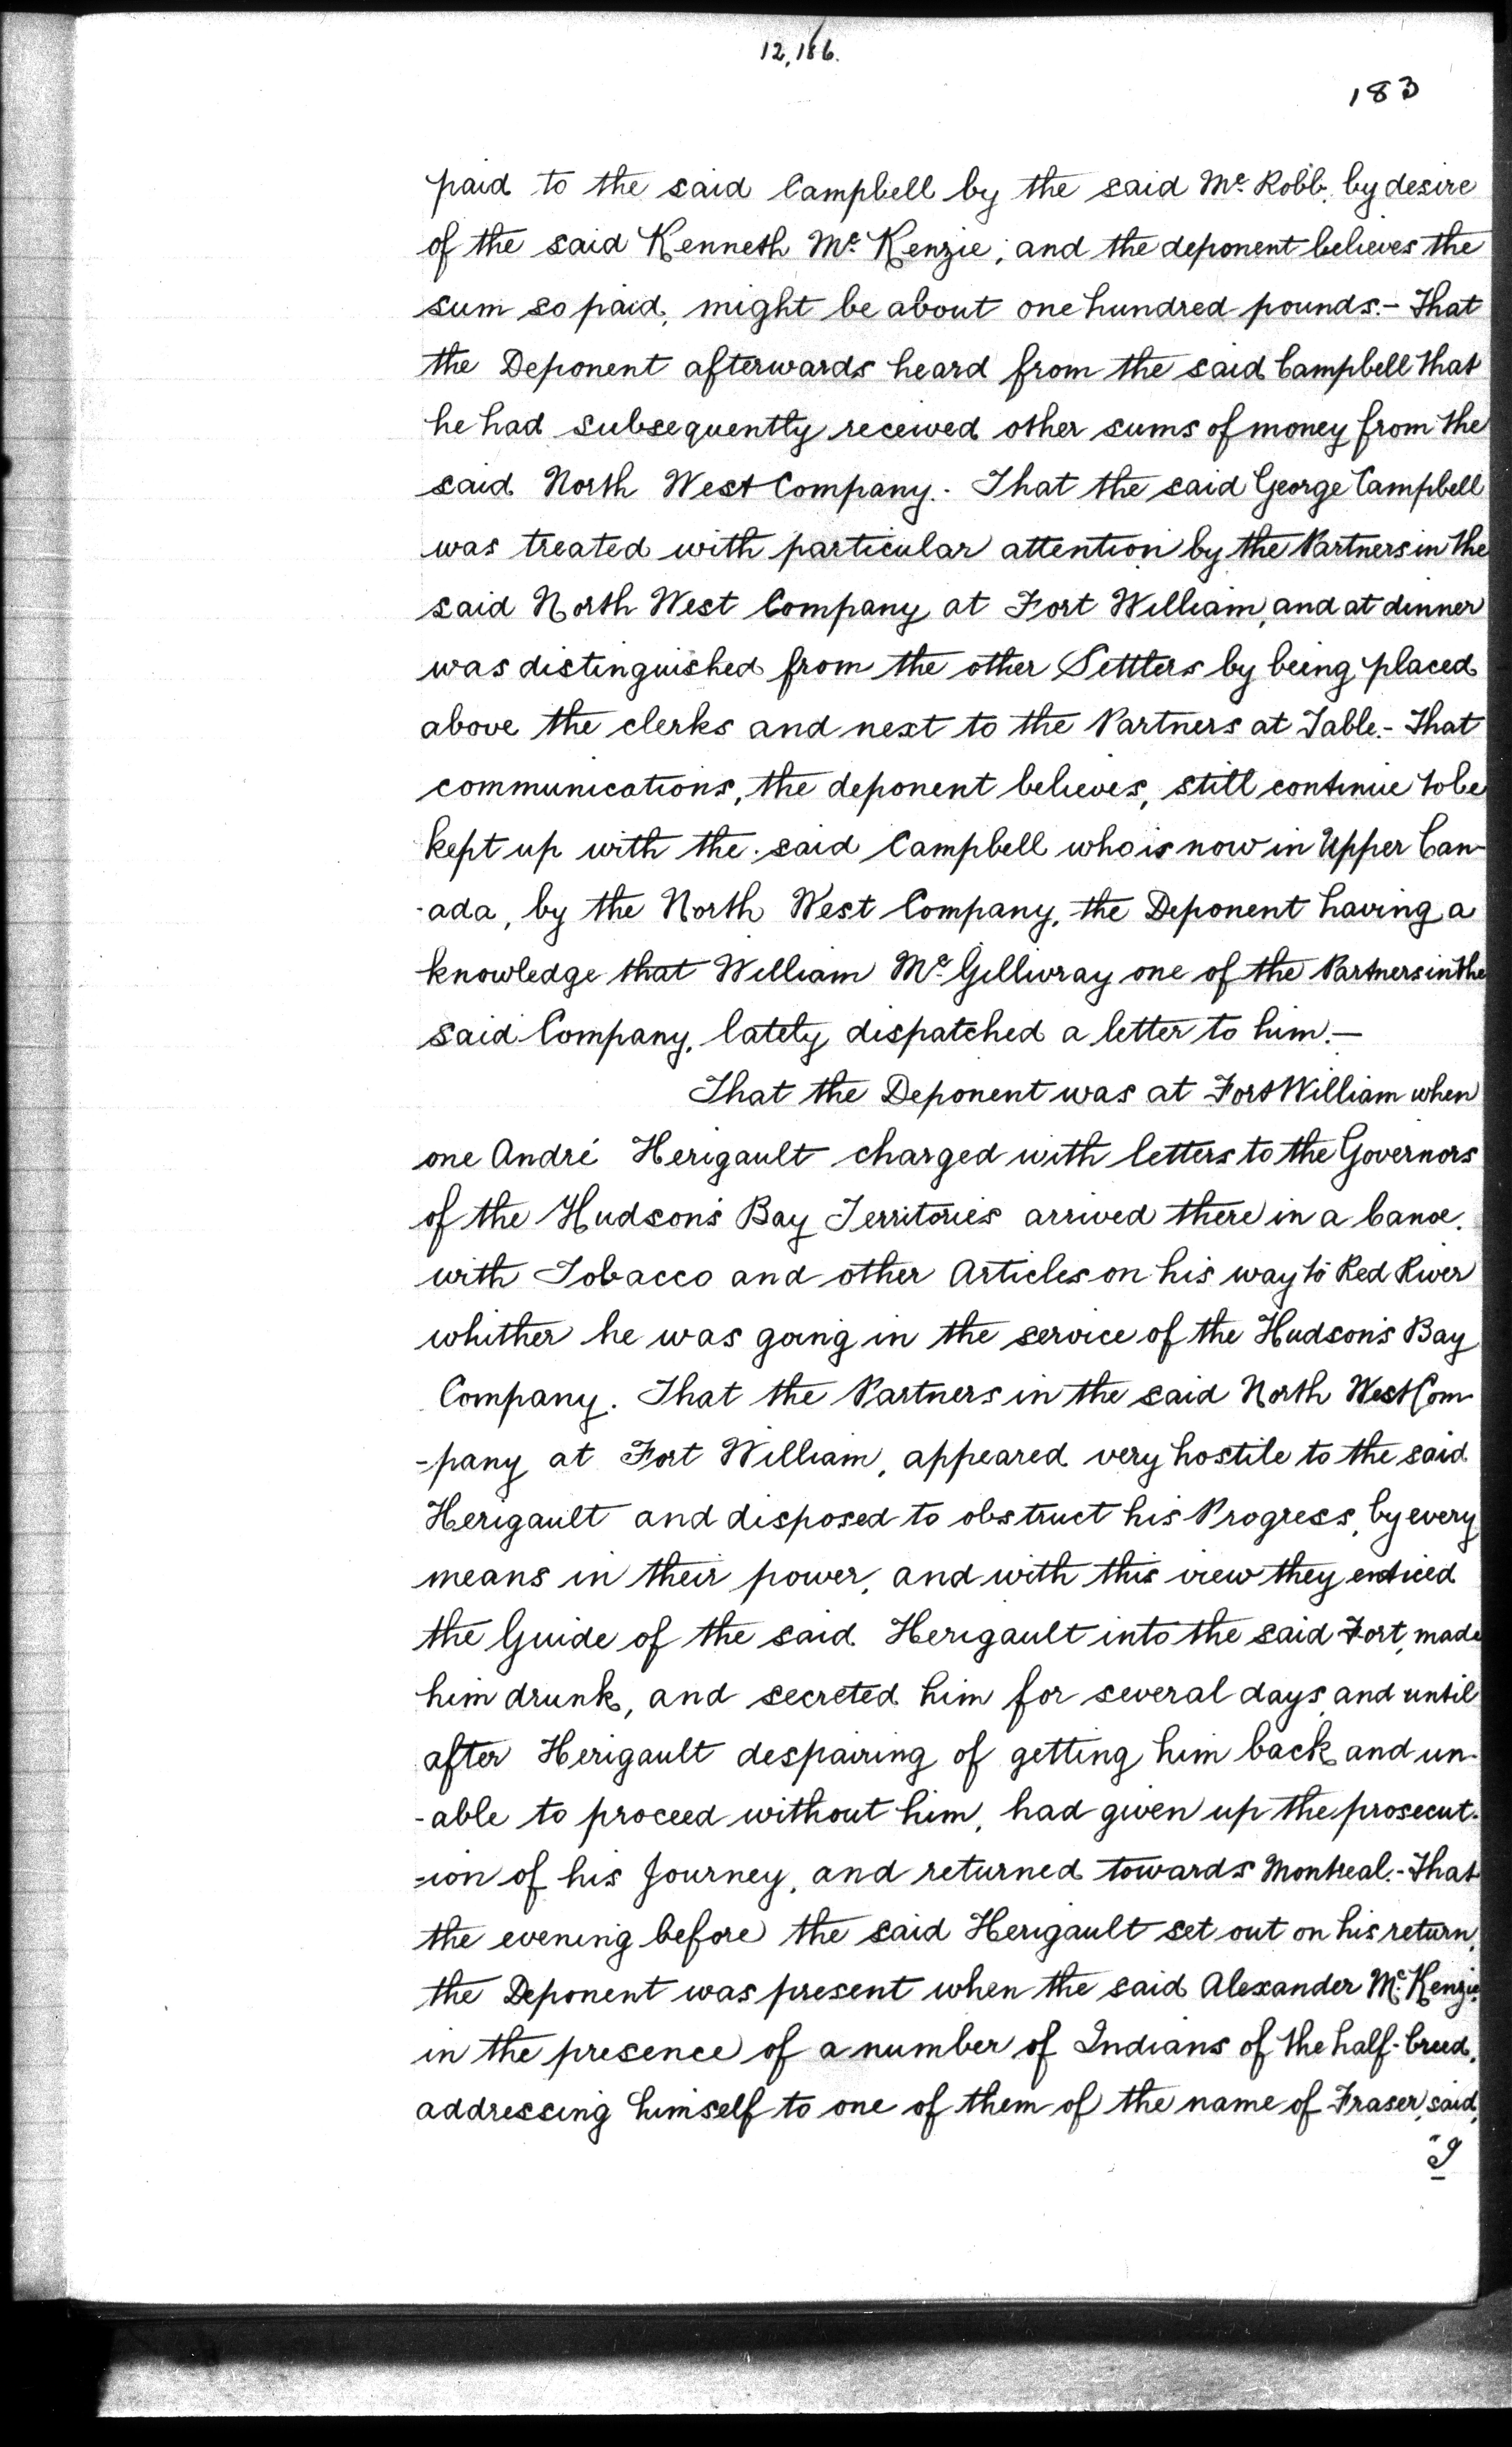 12,186.
183
paid to the said Campbell by the said Mc Robb, by desire
of the said Kenneth Mc Kenzie; and the deponent believes the
sum so paid, might be about one hundred pounds. - That
the Deponent afterwards heard from the said Campbell that
he had subsequently received other sums of money from the
said North West Company. - That the said George Campbell
was treated with particular attention by the Partners in the
said North West Company at Fort William, and at dinner
was distinguished from the other Settlers by being placed
above the clerks and next to the Partners at Table. - That
communications, the deponent believes, still continue to be
kept up with the said Campbell who is now in Upper Can-
-ada, by the North West Company, the Deponent having a
knowledge that William Mc Gillivray one of the Partners in the
said Company, lately dispatched a letter to him. -
That the Deponent was at Fort William when
one André Herigault charged with letters to the Governors
of the Hudson's Bay Territories arrived there in a Canoe,
with Tobacco and other Articles on his way to Red River
whither he was going in the service of the Hudson's Bay
Company. That the Partners in the said North West Com-
-pany at Fort William, appeared very hostile to the said
Herigault and disposed to obstruct his Progress, by every
means in their power, and with this view they enticed
the Guide of the said Herigault into the said Fort, made
him drunk, and secreted him for several days, and until
after Herigault despairing of getting him back and un-
-able to proceed without him, had given up the prosecut-
-ion of his Journey, and returned towards Montreal. - That
the evening before the said Herigault set out on his return,
the Deponent was present when the said Alexander Mc Kenzie
in the presence of a number of Indians of the half-breed,
addressing himself to one of them of the name of Fraser, said,
"I